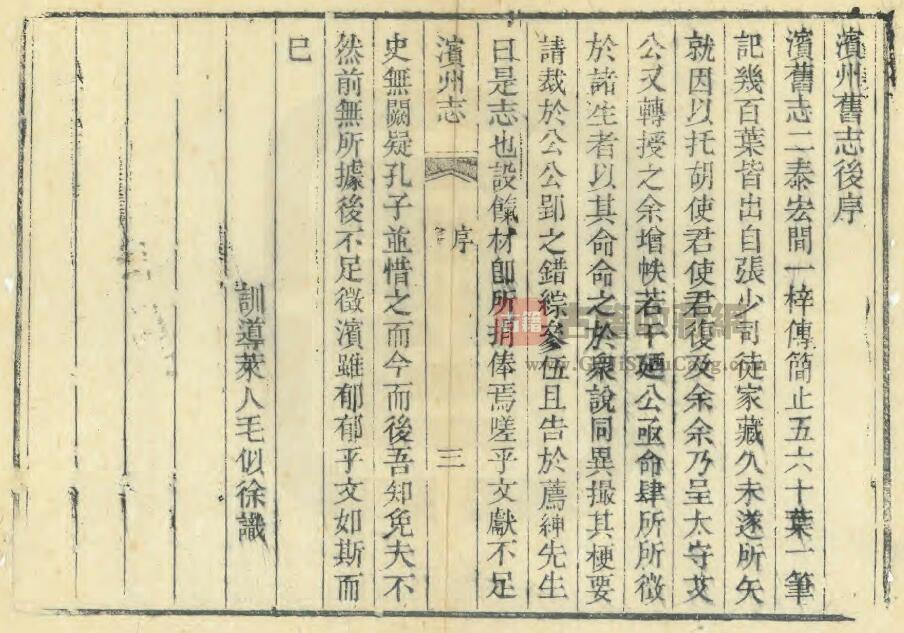 濱州舊志後序
濱舊志二泰宏間一梓傳簡止五六十葉一筆
記幾百葉皆出自張少司徒家藏久未遂所矢
就因以托胡使君使君復及余余乃呈太守艾
公又轉授之余增帙若干廼公亟命肆所所徵
於諸生者以其命命之於衆說同異撮其梗要
請裁於公公郢之錯綜參伍且告於薦紳先生
曰是志也設餼材卽所捐俸焉嗟乎文獻不足
濱州志
序
三
史無闕疑孔子並惜之而今而後吾知免夫不
然前無所據後不足徵濱雖郁郁乎文如斯而
巳
訓導萊人毛似徐識
古籍
www.GuJiShuCang.com